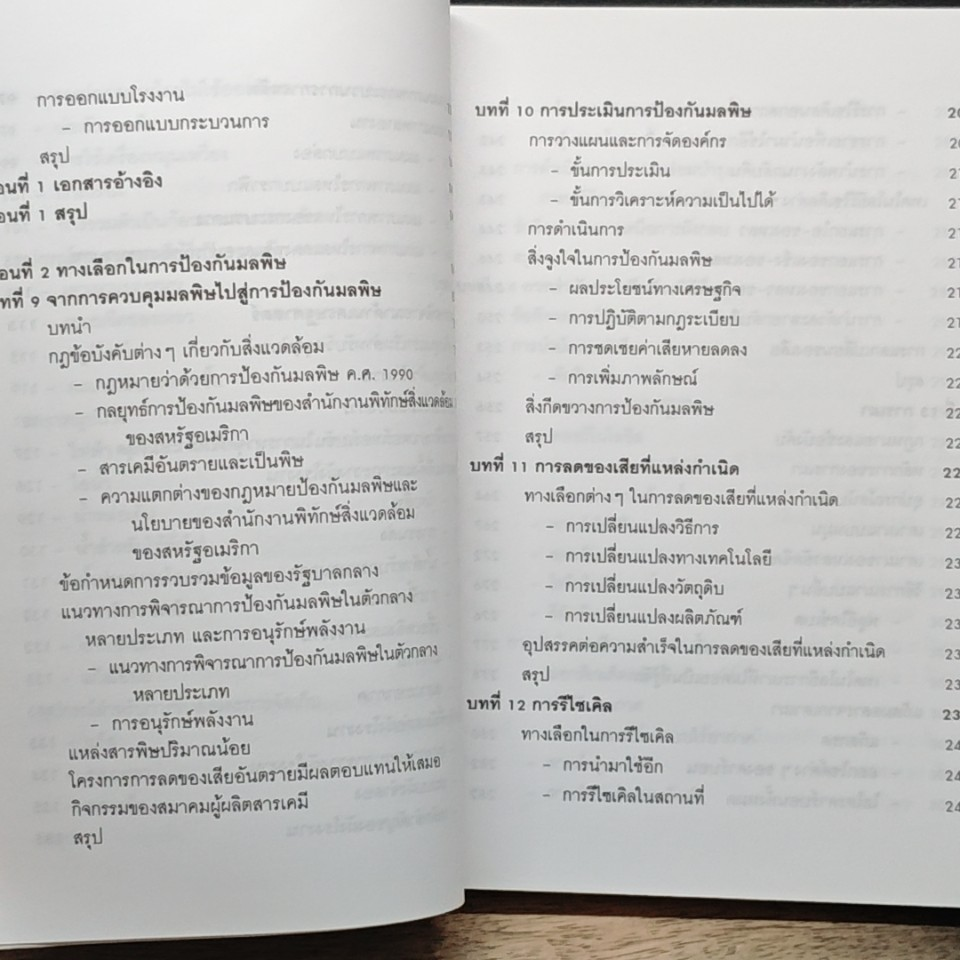 การออกแบบโรงงาน
– การออกแบบกระบวนการ
สรุป
อนที่ 1 เอกสารอ้างอิง
อนที่ 1 สรุป
อนที่ 2 ทางเลือกในการป้องกันมลพิษ
ทที่ 9 จากการควบคุมมลพิษไปสู่การป้องกันมลพิษ
บทนำ
กฎข้อบังคับต่างๆ เกี่ยวกับสิ่งแวดล้อม
– กฎหมายว่าด้วยการป้องกันมลพิษ ค.ศ. 1990
– กลยุทธ์การป้องกันมลพิษของสำนักงานพิทักษ์สิ่งแวดล้อม
ของสหรัฐอเมริกา
– สารเคมีอันตรายและเป็นพิษ
– ความแตกต่างของกฎหมายป้องกันมลพิษและ
นโยบายของสำนักงานพิทักษ์สิ่งแวดล้อม
ของสหรัฐอเมริกา
ข้อกำหนดการรวบรวมข้อมูลของรัฐบาลกลาง
แนวทางการพิจารณาการป้องกันมลพิษในตัวกลาง
หลายประเภท และการอนุรักษ์พลังงาน
– แนวทางการพิจารณาการป้องกันมลพิษในตัวกลาง
หลายประเภท
– การอนุรักษ์พลังงาน
แหล่งสารพิษปริมาณน้อย
โครงการการลดของเสียอันตรายมีผลตอบแทนให้เสมอ
กิจกรรมของสมาคมผู้ผลิตสารเคมี
สรุป
บทที่ 10 การประเมินการป้องกันมลพิษ 20
การวางแผนและการจัดองค์กร 20
– ขั้นการประเมิน 21
– ขั้นการวิเคราะห์ความเป็นไปได้ 21
การดำเนินการ 21
สิ่งจูงใจในการป้องกันมลพิษ 21
– ผลประโยชน์ทางเศรษฐกิจ 21
– การปฏิบัติตามกฎระเบียบ 21
– การชดเชยค่าเสียหายลดลง 22
– การเพิ่มภาพลักษณ์ 22
สิ่งกีดขวางการป้องกันมลพิษ 22
สรุป 22
บทที่ 11 การลดของเสียที่แหล่งกำเนิด 22
ทางเลือกต่างๆ ในการลดของเสียที่แหล่งกำเนิด 22
– การเปลี่ยนแปลงวิธีการ 22
– การเปลี่ยนแปลงทางเทคโนโลยี 23
– การเปลี่ยนแปลงวัตถุดิบ 23
– การเปลี่ยนแปลงผลิตภัณฑ์ 23
อุปสรรคต่อความสำเร็จในการลดของเสียที่แหล่งกำเนิด 23
สรุป 23
บทที่ 12 การรีไซเคิล 23
ทางเลือกในการรีไซเคิล 24
– การนำมาใช้อีก 24
– การรีไซเคิลในสถานที่ 24